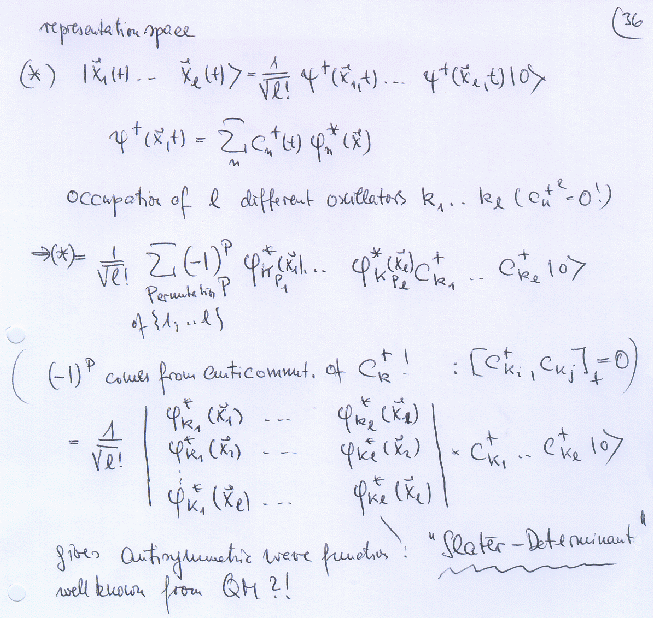 (36
representation space
(*) |x⃗₁(t) ... x⃗ₗ(t)⟩ = 1/√l! ψ⁺(x⃗₁,t) ... ψ⁺(x⃗ₗ,t)|0⟩
ψ⁺(x⃗,t) = ∑ₙ cₙ⁺(t) φₙ*(x⃗)
occupation of l different oscillators k₁ .. kₗ (cₙ⁺² = 0!)
⇒(*) = 1/√l! ∑ (-1)ᴾ φ*_{k_{P₁}}(x⃗₁) ... φ*_{k_{Pₗ}}(x⃗ₗ) C⁺_{k₁} .. C⁺_{kₗ} |0⟩
Permutation P
of {1, .. l}
( (-1)ᴾ comes from anticommut. of C⁺_k ! : [C⁺_{k_i}, C_{k_j}]₊ = 0)
= 1/√l! | φ*_{k₁}(x⃗₁) ... φ*_{kₗ}(x⃗ₗ) |
| φ*_{k₁}(x⃗₂) ... φ*_{kₗ}(x⃗₂) | × C⁺_{k₁} .. C⁺_{kₗ} |0⟩
| φ*_{k₁}(x⃗ₗ) ... φ*_{kₗ}(x⃗ₗ) |
gives antisymmetric wave function! "Slater-Determinant"
well known from QM?!